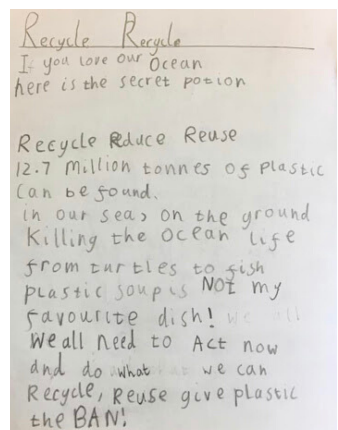 Recycle Recycle
If you love our Ocean
here is the secret potion
Recycle Rduce Reuse
12.7 Million tonnes of plastic
Can be found.
in our sea, on the ground
Killing the Ocean life
from turtles to fish
plastic soup is NOT my
favourite dish! we all
We all need to Act now
and do what we can
Recycle, Reuse give plastic
the BAN!